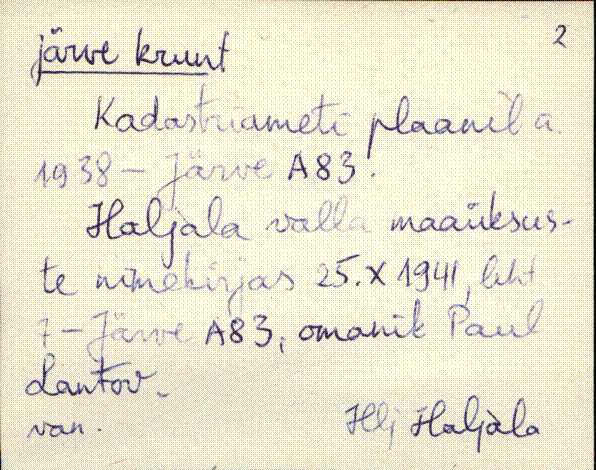 2
järve krunt
Kadastriameti plaanil a.
1938 - Järve A83.
Haljala valla maaüksus-
te nimekirjas 25.X 1941, leht
7 - Järve A83, omanik Paul
Lantov.
van.
Hlj Haljala